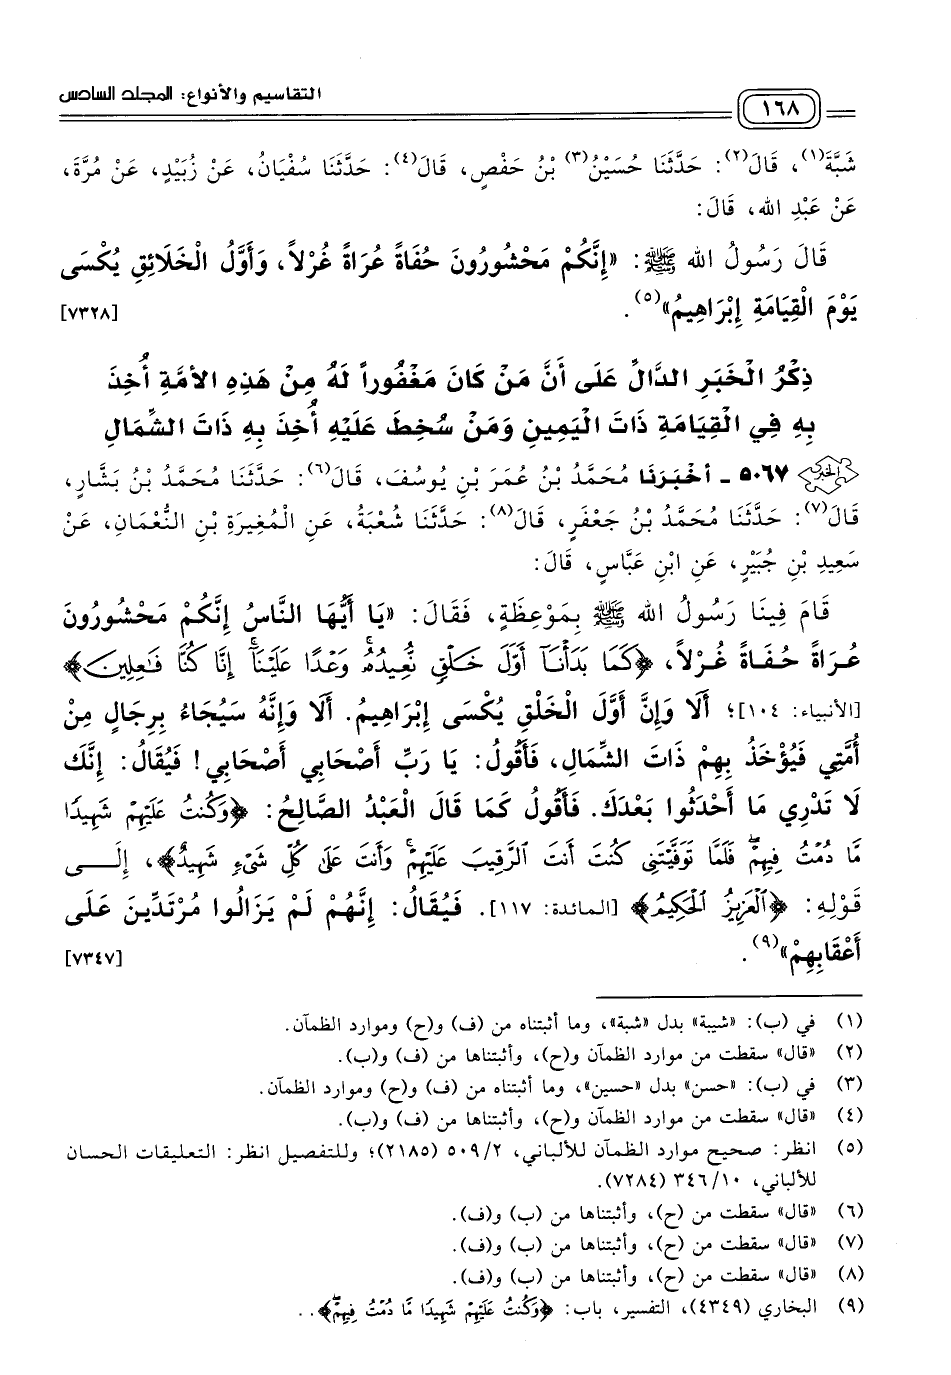 التقاسيم والأنواع: المجلد السادس
١٦٨
شَبَّةَ(١)، قَالَ(٢): حَدَّثَنَا حُسَيْنُ(٣) بْنُ حَفْصٍ، قَالَ(٤): حَدَّثَنَا سُفْيَانُ، عَنْ زُبَيْدٍ، عَنْ مُرَّةَ،
عَنْ عَبْدِ الله، قَالَ:
قَالَ رَسُولُ الله ﷺ: «إِنَّكُمْ مَحْشُورُونَ حُفَاةً عُرَاةً غُرْلاً، وَأَوَّلُ الْخَلَائِقِ يُكْسَى
يَوْمَ الْقِيَامَةِ إِبْرَاهِيمُ»(٥). [٧٣٢٨]
ذِكْرُ الْخَبَرِ الدَّالِّ عَلَى أَنَّ مَنْ كَانَ مَغْفُوراً لَهُ مِنْ هَذِهِ الأمَّةِ أُخِذَ
بِهِ فِي الْقِيَامَةِ ذَاتَ الْيَمِينِ وَمَنْ سُخِطَ عَلَيْهِ أُخِذَ بِهِ ذَاتَ الشِّمَالِ
٥٠٦٧ - أخْبَرَنَا مُحَمَّدُ بْنُ عُمَرَ بْنِ يُوسُفَ، قَالَ(٦): حَدَّثَنَا مُحَمَّدُ بْنُ بَشَّارٍ،
قَالَ(٧): حَدَّثَنَا مُحَمَّدُ بْنُ جَعْفَرٍ، قَالَ(٨): حَدَّثَنَا شُعْبَةُ، عَنِ الْمُغِيرَةِ بْنِ النُّعْمَانِ، عَنْ
سَعِيدِ بْنِ جُبَيْرٍ، عَنِ ابْنِ عَبَّاسٍ، قَالَ:
قَامَ فِينَا رَسُولُ الله ﷺ بِمَوْعِظَةٍ، فَقَالَ: «يَا أَيُّهَا النَّاسُ إِنَّكُمْ مَحْشُورُونَ
عُرَاةً حُفَاةً غُرْلاً، ﴿كَمَا بَدَأْنَآ أَوَّلَ خَلْقٍ نُّعِيدُهُۥ وَعْدًا عَلَيْنَآ إِنَّا كُنَّا فَٰعِلِينَ﴾
[الأنبياء: ١٠٤]؛ أَلَا وَإِنَّ أَوَّلَ الْخَلْقِ يُكْسَى إِبْرَاهِيمُ. أَلَا وَإِنَّهُ سَيُجَاءُ بِرِجَالٍ مِنْ
أُمَّتِي فَيُؤْخَذُ بِهِمْ ذَاتَ الشِّمَالِ، فَأَقُولُ: يَا رَبِّ أَصْحَابِي أَصْحَابِي! فَيُقَالُ: إِنَّكَ
لَا تَدْرِي مَا أَحْدَثُوا بَعْدَكَ. فَأَقُولُ كَمَا قَالَ الْعَبْدُ الصَّالِحُ: ﴿وَكُنتُ عَلَيْهِمْ شَهِيدًا
مَّا دُمْتُ فِيهِمْۖ فَلَمَّا تَوَفَّيْتَنِى كُنتَ أَنتَ ٱلرَّقِيبَ عَلَيْهِمْۚ وَأَنتَ عَلَىٰ كُلِّ شَىْءٍ شَهِيدٌ﴾، إِلَـــى
قَوْلِهِ: ﴿ٱلْعَزِيزُ ٱلْحَكِيمُ﴾ [المائدة: ١١٧]. فَيُقَالُ: إِنَّهُمْ لَمْ يَزَالُوا مُرْتَدِّينَ عَلَى
أَعْقَابِهِمْ»(٩). [٧٣٤٧]
(١) في (ب): «شيبة» بدل «شبة»، وما أثبتناه من (ف) و(ح) وموارد الظمآن.
(٢) «قال» سقطت من موارد الظمآن و(ح)، وأثبتناها من (ف) و(ب).
(٣) في (ب): «حسن» بدل «حسين»، وما أثبتناه من (ف) و(ح) وموارد الظمآن.
(٤) «قال» سقطت من موارد الظمآن و(ح)، وأثبتناها من (ف) و(ب).
(٥) انظر: صحيح موارد الظمآن للألباني، ٥٠٩/٢ (٢١٨٥)؛ وللتفصيل انظر: التعليقات الحسان
للألباني، ٣٤٦/١٠ (٧٢٨٤).
(٦) «قال» سقطت من (ح)، وأثبتناها من (ب) و(ف).
(٧) «قال» سقطت من (ح)، وأثبتناها من (ب) و(ف).
(٨) «قال» سقطت من (ح)، وأثبتناها من (ب) و(ف).
(٩) البخاري (٤٣٤٩)، التفسير، باب: ﴿وَكُنتُ عَلَيْهِمْ شَهِيدًا مَّا دُمْتُ فِيهِمْۖ﴾. .